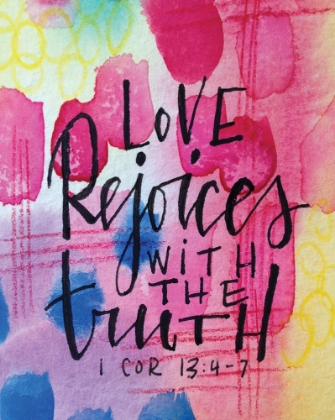 LOVE
Rejoices
WITH
THE
truTH
1 COR 13:4-7